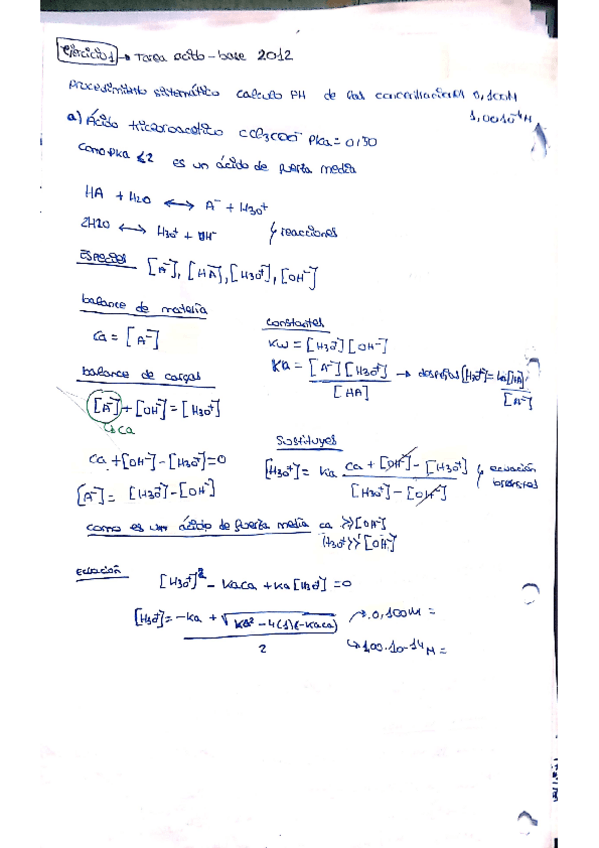 Ejercicio 1 → Tarea acido-base 2012
Procedimiento sistemático calculo PH de las concentraciones 0,100M
1,00·10⁻⁴M
a) Ácido tricloroacetico CCl₃COO⁻ pka = 0,30
Como pka ≤ 2 es un ácido de fuerza media
HA + H₂O ⟷ A⁻ + H₃O⁺
2H₂O ⟷ H₃O⁺ + OH⁻ reacciones
Especies [A⁻], [HA], [H₃O⁺], [OH⁻]
balance de materia
Ca = [A⁻]
constantes
Kw = [H₃O⁺][OH⁻]
Ka = [A⁻][H₃O⁺] / [HA] → despejas [H₃O⁺] = Ka[HA] / [A⁻]
balance de cargas
[A⁻] + [OH⁻] = [H₃O⁺]
Ca
Ca + [OH⁻] - [H₃O⁺] = 0
[A⁻] = [H₃O⁺] - [OH⁻]
Sustituyes
[H₃O⁺] = Ka Ca + [OH⁻] - [H₃O⁺] / [H₃O⁺] - [OH⁻] ecuación
como es un ácido de fuerza media ca >> [OH⁻]
H₃O⁺ >> [OH⁻]
Ecuación
[H₃O⁺]² - KaCa + Ka[H₃O⁺] = 0
[H₃O⁺] = -Ka + √Ka² - 4(1)(-KaCa) / 2
→ 0,100M =
→ 1,00·10⁻¹⁴M =